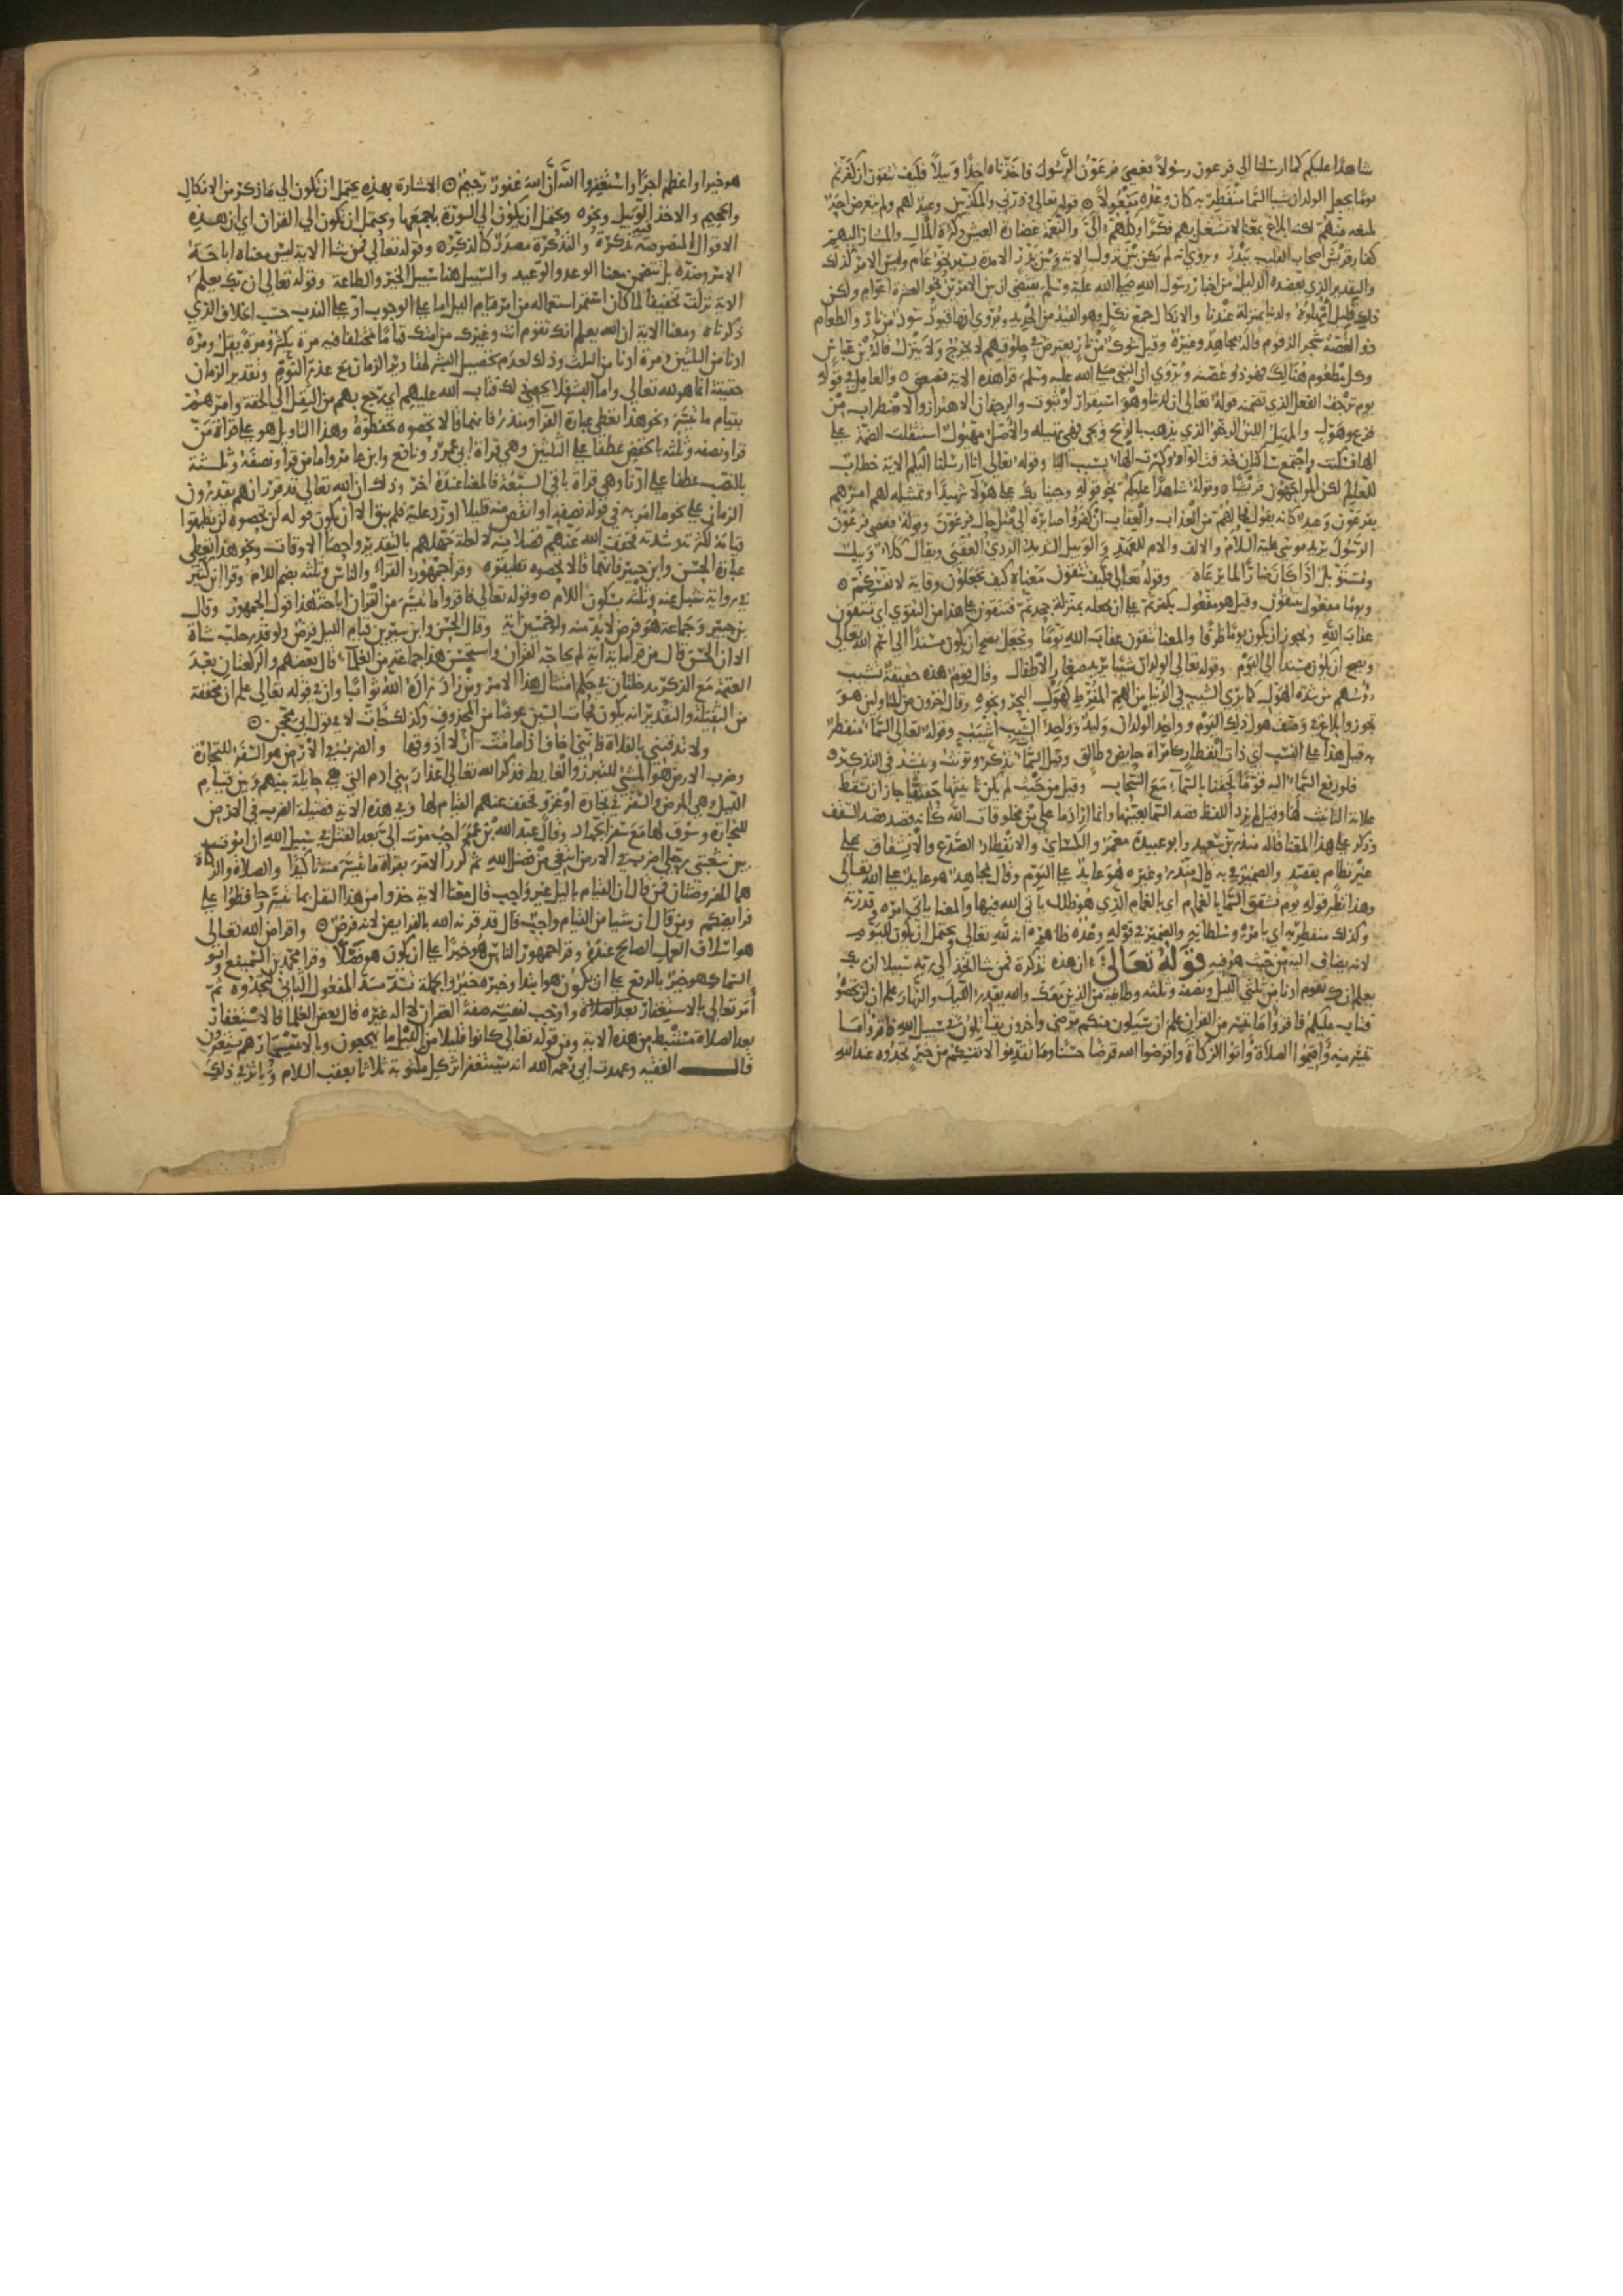 شاهدا عليكم كما ارسلنا الي فرعون رسولا فعصي فرعون الرسول فاخذناه اخذا وبيلا فكيف تتقون ان كفرتم
يوما يجعل الولدان شيبا السما منفطر به كان وعده مفعولا ۞ قوله تعالي وذرني والمكذبين وعيد لهم ولم يتعرض احد
لمنعه منهم لكنه ابلاغ بمعنا لا تشغل بهم فكرا وكلهم الي والنعمة غضارة العيش وكثرة المال والمشار اليهم
كفار قريش اصحاب القليب ببدر وروي انه لم يكن بين نزول الاية وبين بدر الا مدة يسيرة نحو عام وليس الامر كذلك
والتقدير الذي يعضده الدليل من اخبار رسول الله صلي الله عليه وسلم يقتضي ان بين الامرين نحو العشرة اعوام ولكن
ذلك قليل امهلوه ولدنا بمنزلة عندنا والانكال جمع نكل وهو القيد من الحديد ويروي انها قيود سود من نار والطعام
ذو الغصة شجر الزقوم قاله مجاهد وغيره وقيل شوك من نار يعترض في حلوقهم لا يخرج ولا ينزل قاله بن عباس
وكل مطعوم هنالك فهو ذو غصة ويروي ان النبي صلي الله عليه وسلم قرا هذه الاية فصعق ۞ والعامل في قوله
يوم ترجف الفعل الذي تضمنه قوله تعالي ان لدينا وهو استقرار او ثبوت والرجفان الاهتزاز والاضطراب من
فزع وهول والمهيل اللين الرخو الذي يذهب بالريح ويجي فهي تهيله والاصل مهيول استثقلت الضمة علي
اليا فسكنت واجتمع ساكنان فحذفت الواو وكسرت الها بسبب اليا وقوله تعالي انا ارسلنا اليكم الاية خطاب
للعالم لكن المواجهون قريش ۞ وقوله شاهدا عليكم نحو قوله وجينا بك علي هولا شهيدا وتمثيله لهم امرهم
بفرعون وعيد كانه يقول فحالهم من العذاب والعقاب ان كفروا صايرة الي مثل حال فرعون وقوله فعصي فرعون
الرسول يريد موسي عليه السلام والالف واللام للعهد والوبيل الشديد الردي العقبي ويقال كلا وبيل
ومستوبل اذا كان ضارا لما يرعاه وقوله تعالي فكيف تتقون معناه كيف تجعلون وقاية لانفسكم ۞
ويوما مفعول بتتقون وقيل هو مفعول بكفرتم علي ان يجعله بمنزلة جحدتم فتتقون علي هذا من التقوي اي تتقون
عذاب الله ويجوز ان يكون يوما ظرفا والمعنا تتقون عقاب الله يوما ويجعل يصح ان يكون مسندا الي اسم الله تعالي
ويصح ان يكون مسندا الي اليوم وقوله تعالي الولدان شيبا يريد صغار الاطفال وقال قوم هذه حقيقة تشيب
رؤسهم من شدة الهول كما يري الشيب في الدنيا من الهم المفرط كهول البحر ونحوه وقال اخرون من المتاولين هو
تجوز وابلاغ في وصف هول ذلك اليوم وواحد الولدان وليد وواحد الشيب اشيب وقوله تعالي السما منفطر
به قيل هذا علي النسب اي ذات انفطار كامراة حايض وطالق وقيل السما تذكر وتونث وينشد في التذكير ۞
فلو رفع السما اليه قوما لحقنا بالسما مع السحاب وقيل من حيث لم يكن تانيثها حقيقيا جاز ان تسقط
علامة التانيث لها وقيل لم يرد اللفظ قصد السما بعينها وانما اراد ما علا من مخلوقات الله كانه قصد قصد السقف
وذكر علي هذا المعنا قاله منذر بن سعيد وابو عبيدة معمر والكساي والانفطار الصدع والانشقاق علي
غير نظام بقصد والضمير في به قال منذر وغيره هو عايد علي اليوم وقال مجاهد هو عايد علي الله تعالي
وهذا نظير قوله يوم تشقق السما بالغمام اي بالغمام الذي هو ظلل ياتي الله فيها والمعنا ياتي امره وقدرته
وكذلك منفطر به اي بامره وسلطانه والضمير في قوله وعده ظاهره انه لله تعالي ويحتمل ان يكون لليوم
لانه يضاف اليه من حيث هو فيه قوله تعالي ان هذه تذكرة فمن شا اتخذ الي ربه سبيلا ان ربك
يعلم انك تقوم ادنا من ثلثي الليل ونصفه وثلثه وطايفة من الذين معك والله يقدر الليل والنهار علم ان لن تحصوه
فتاب عليكم فاقروا ما تيسر من القران علم ان سيكون منكم مرضي واخرون يقاتلون في سبيل الله فاقروا ما
تيسر منه واقيموا الصلاة واتوا الزكاة واقرضوا الله قرضا حسنا وما تقدموا لانفسكم من خير تجدوه عند الله
هو خيرا واعظم اجرا واستغفروا الله ان الله غفور رحيم ۞ الاشارة بهذه يحتمل ان تكون الي ما ذكر من الانكال
والجحيم والاخذ الوبيل ونحوه ويحتمل ان يكون الي السورة باجمعها ويحتمل ان تكون الي القران اي ان هذه
الاقوال المنصوصة فيه تذكرة والتذكرة مصدر كالذكر ۞ وقوله تعالي فمن شا الاية ليس معناه اباحة
الامر وضده بل تتضمن معنا الوعد والوعيد والسبيل هنا سبيل الخير والطاعة وقوله تعالي ان ربك يعلم
الاية نزلت تخفيفا لما كان استمر استعماله من امر قيام الليل اما علي الوجوب او علي الندب حسب الخلاف الذي
ذكرناه ومعنا الاية ان الله يعلم انك تقوم انت وغيرك من امتك قياما مختلفا فيه مرة يكثر ومرة يقل ومرة
ادنا من الثلثين ومرة ادنا من الثلث وذلك لعدم تحصيل البشر لمقادير الزمان مع عذر النوم وتقدير الزمان
حقيقة انما هو لله تعالي واما البشر فلا يحصي ذلك فتاب الله عليهم اي رجع بهم من الثقل الي الخفة وامرهم
بقيام ما تيسر ونحو هذا تعطي عبارة الفرا ومنذر فانهما قالا تحصوه تحفظوه وهذا التاويل هو علي قراة من
قرا ونصفه وثلثه بالخفض عطفا علي الثلثين وهي قراة ابي عمرو ونافع وابن عامر واما من قرا ونصفه وثلثه
بالنصب عطفا علي ادنا وهي قراة باقي السبعة فالمعنا عنده اخر وذلك ان الله تعالي قد قرر انهم يقدرون
الزمان علي نحو ما امر به في قوله نصفه او انقص منه قليلا او زد عليه فلم يبق الا ان يكون قوله لن تحصوه لن تطيقوا
قيامه لكثرته وشدته فخفف الله عنهم فضلا منه لا لعلة جهلهم بالتقدير واحصا الاوقات ونحو هذا تعطي
عبارة الحسن وابن جبير فانهما قالا تحصوه تطيقوه وقرا جمهور القراء والناس وثلثه بضم اللام وقرا ابن كثير
في رواية شبل عنه وثلثه بسكون اللام ۞ وقوله تعالي فاقروا ما تيسر من القران اباحة هذا قول الجمهور وقال
بن جبير وجماعة هو فرض لا بد منه ولو خمسين اية وقال الحسن وابن سيرين قيام الليل فرض ولو قدر حلب شاة
الا ان الحسن قال من قرا ماية اية لم يحاجه القران واستحسن هذا جماعة من العلماء قال بعضهم والركعتان بعد
العتمة مع الوتر مدخلتان في حكم امتثال هذا الامر ومن زاد زاده الله ثوابا وان في قوله تعالي علم ان مخففة
من الثقيلة والتقدير انه يكون فجات السين عوضا من المحذوف وكذلك جات لا في قول ابي محجن ۞
ولا تدفنني بالفلاة فانني اخاف اذا ما مت ان لا اذوقها والضرب في الارض هو السفر للتجارة
وضرب الارض هو المشي للتبرز والغايط فذكر الله تعالي اعذار بني ادم التي هي حايلة بينهم وبين قيام
الليل وهي المرض والسفر في تجارة او غزو فخفف عنهم القيام لها وفي هذه الاية فضيلة الضرب في الارض
للتجارة وسوق لها مع سفر الجهاد وقال عبد الله بن عمر احب موت الي بعد القتل في سبيل الله ان اموت
بين شعبتي رحلي اضرب في الارض ابتغي من فضل الله ثم كرر الامر بقراة ما تيسر منه تاكيدا والصلاة والزكاة
هما المفروضتان فمن قال ان القيام بالليل غير واجب قال معنا الاية خذوا من هذا النفل بما تيسر وحافظوا علي
فرايضكم ومن قال ان شيا من القيام واجب قال قد قرنه الله بالفرايض لانه فرض ۞ واقراض الله تعالي
هو اسلاف العمل الصالح عنده وقرا جمهور الناس هو خيرا علي ان يكون هو فصلا وقرا محمد بن السميفع وابو
السمال هو خير بالرفع علي ان يكون هو ابتدا وخبره خير والجملة تسد مسد المفعول الثاني لتجدوه ثم
امر تعالي بالاستغفار بعد الصلاة واوجب لنفسه صفة الغفران لا اله غيره قال بعض العلما فالاستغفار
بعد الصلاة مستنبط من هذه الاية ومن قوله تعالي كانوا قليلا من الليل ما يهجعون وبالاسحار هم يستغفرون
قال الفقيه وعهدت ابي رحمه الله انه يستغفر اثر كل مكتوبة ثلاثا بعقب السلام وياثر في ذلك